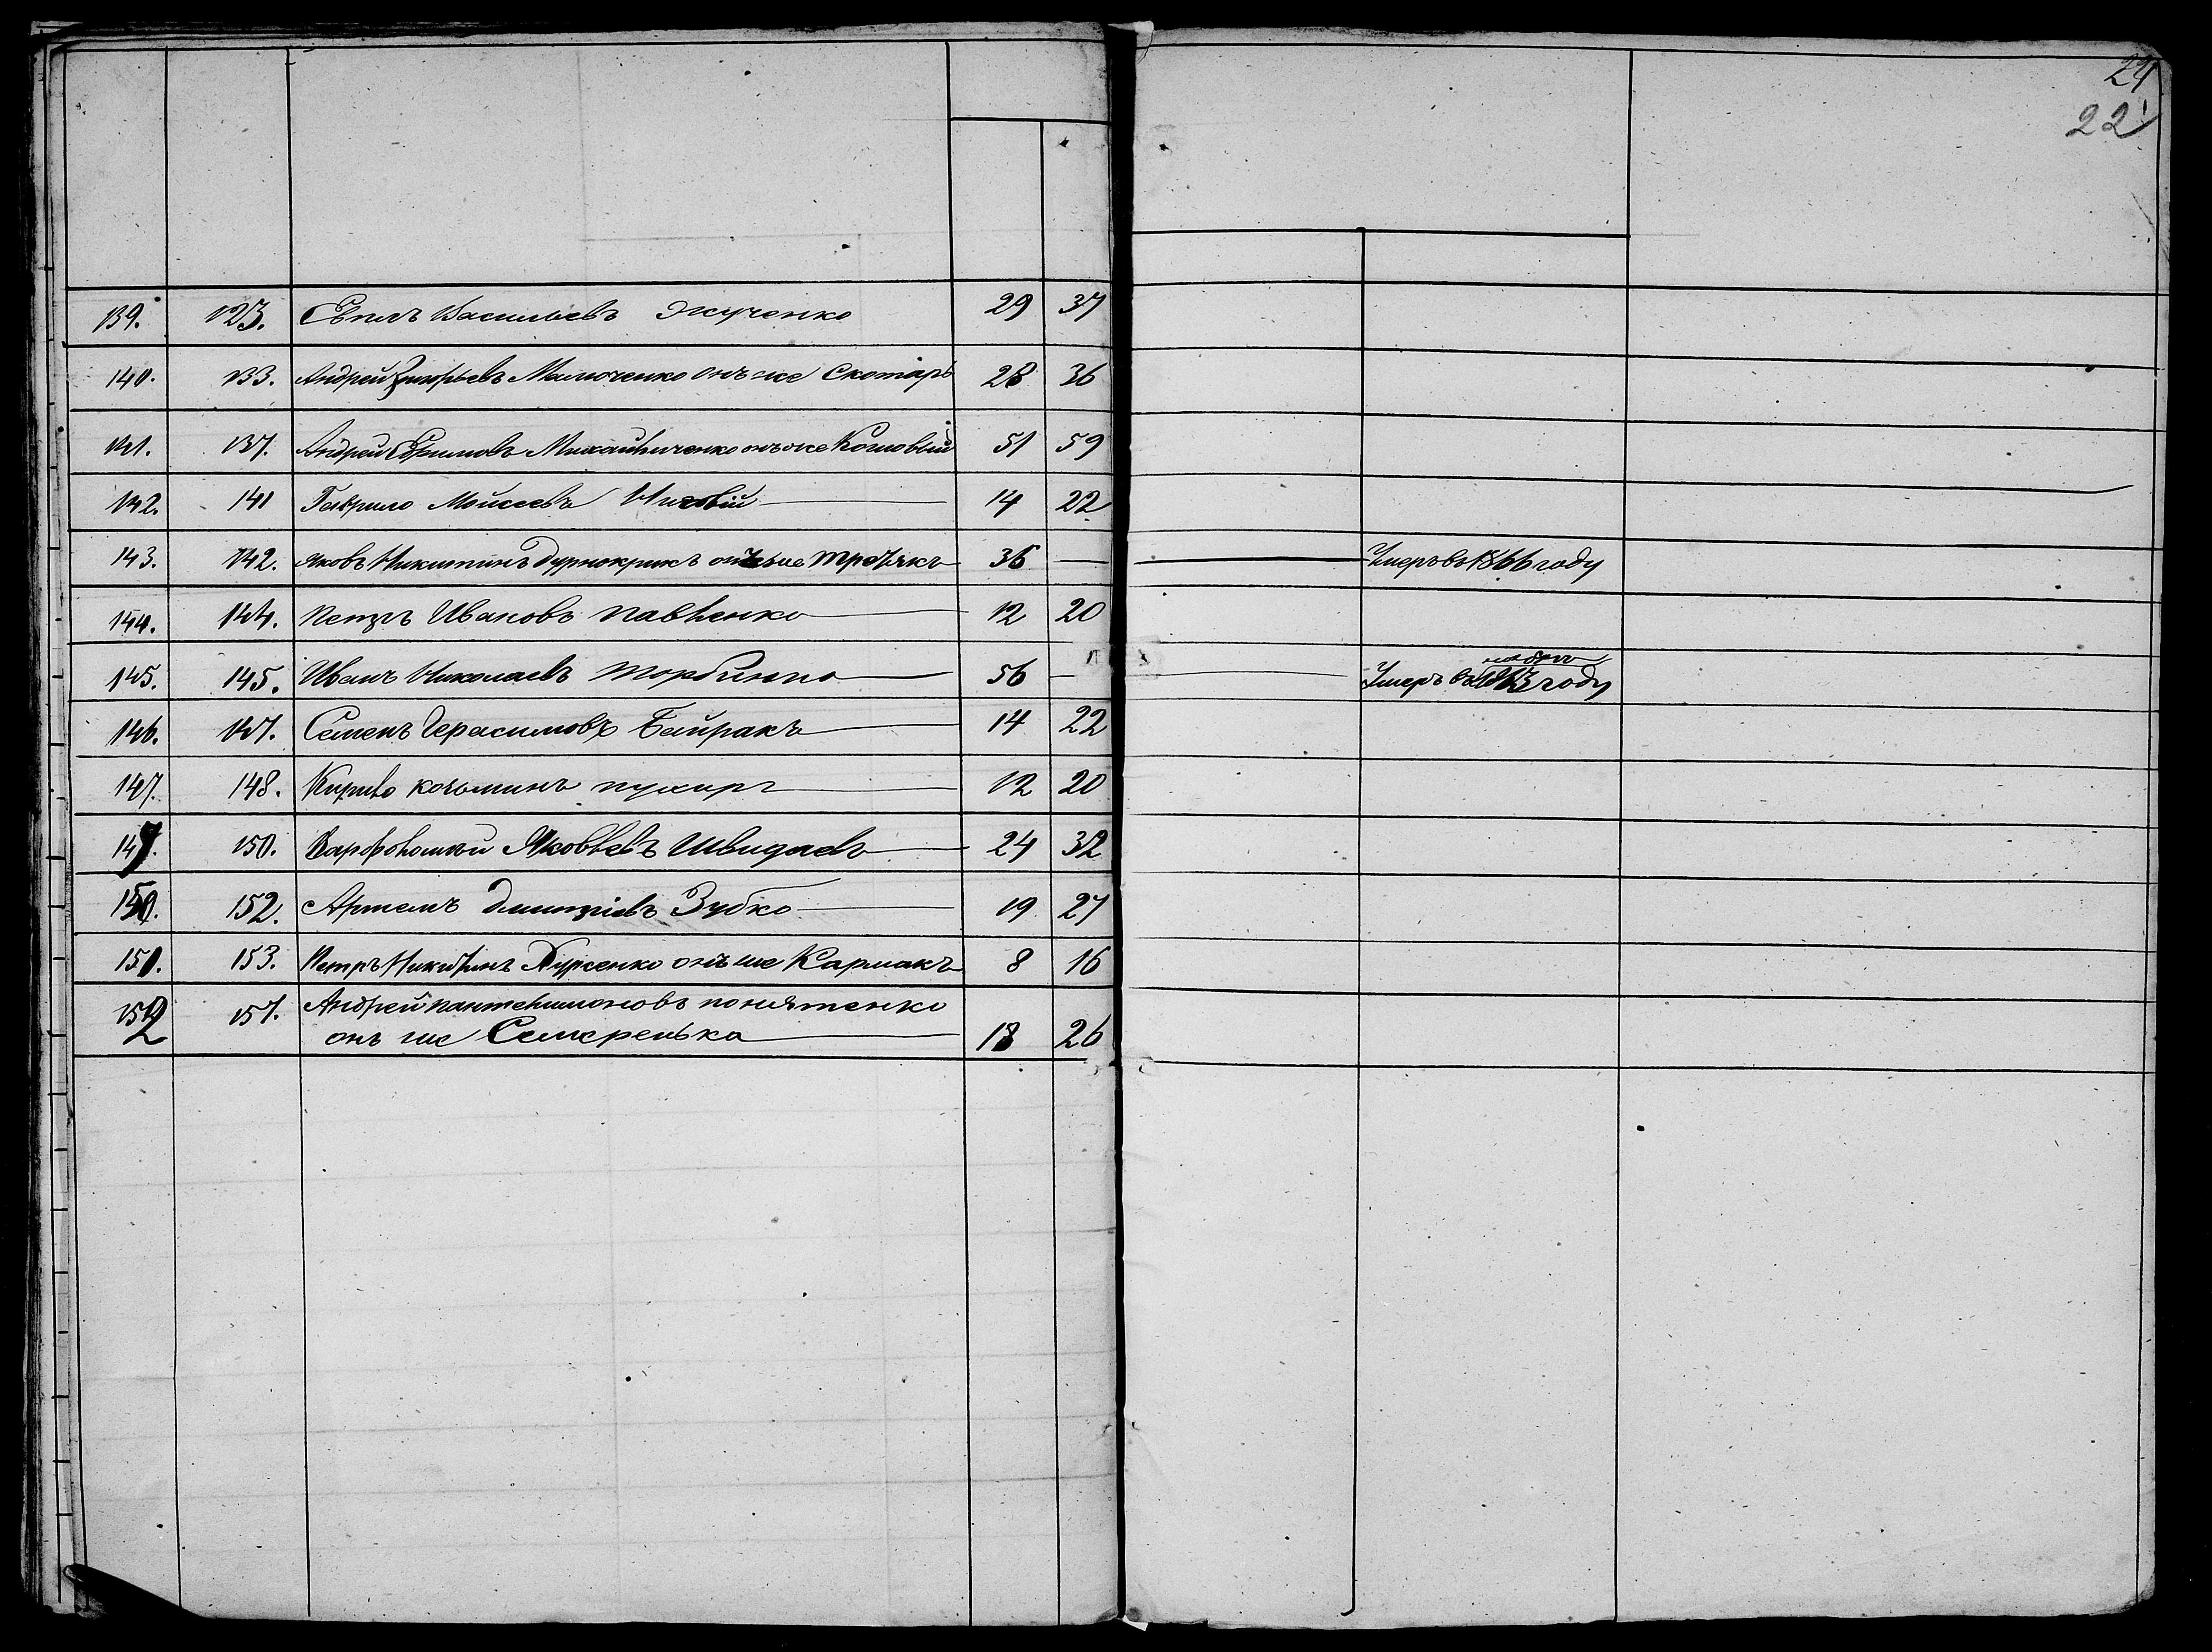 24
22
139. 123. Евпелъ Васильевъ Жученко 29 37
140. 133. Андрей Григорьевъ онъ же Скотарь 28 36
141. 137. Андрей Ефимовъ Михайличенко онъ же Кошовый 51 59
142. 141 Гаврило Мойсеевъ 14 22
143. 142. Яковъ Никитинъ Дурнокрикъ онъ же Третякъ 36 — Умеръ въ 1866 году
144. 144. Петръ Ивановъ Павленко 12 20
145. 145. Иванъ Николаевъ Торбинко 56 — Умеръ въ году
146. 147. Семенъ Герасимовъ Байракъ 14 22
147. 148. Кирило Козьминъ Пухирь 12 20
147. 150. Варфоломей Яковлевъ 24 32
150. 152. Артемъ Дмитріевъ Зубко 19 27
151. 153. Петръ Никитинъ онъ же Кармакъ 8 16
152 157. Андрей Пантелимоновъ Понятенко
онъ же Семеренька 18 26